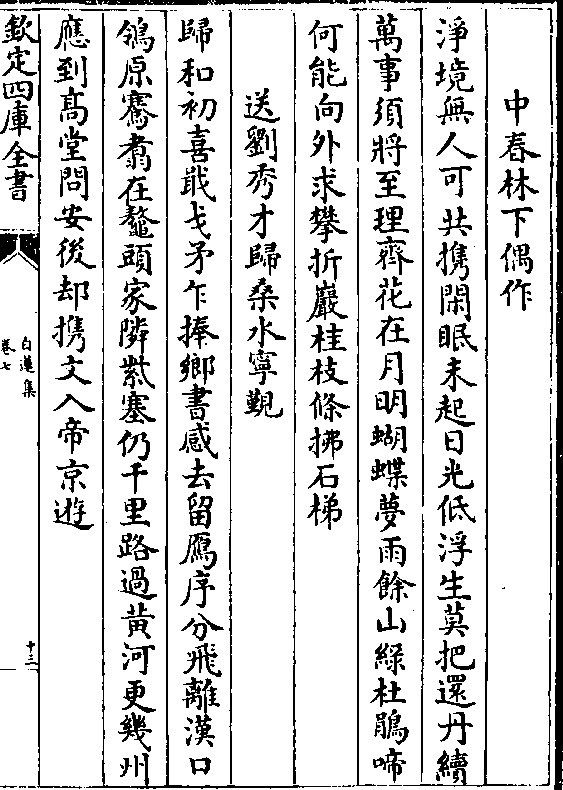 中春林下偶作
淨境無人可共携閑眠未起日光低浮生莫把還丹續
萬事須將至理齊花在月明蝴蝶夢雨餘山綠杜鵑啼
何能向外求攀折巖桂枝條拂石梯
送劉秀才歸桑水寧覲
歸和初喜戢戈矛乍捧鄉書感去留鴈序分飛離漢口
鴒原騫翥在鼇頭家隣紫塞仍千里路過黄河更幾州
應到髙堂問安後却携文入帝京遊
欽定四庫全書
白蓮集
卷七
十三